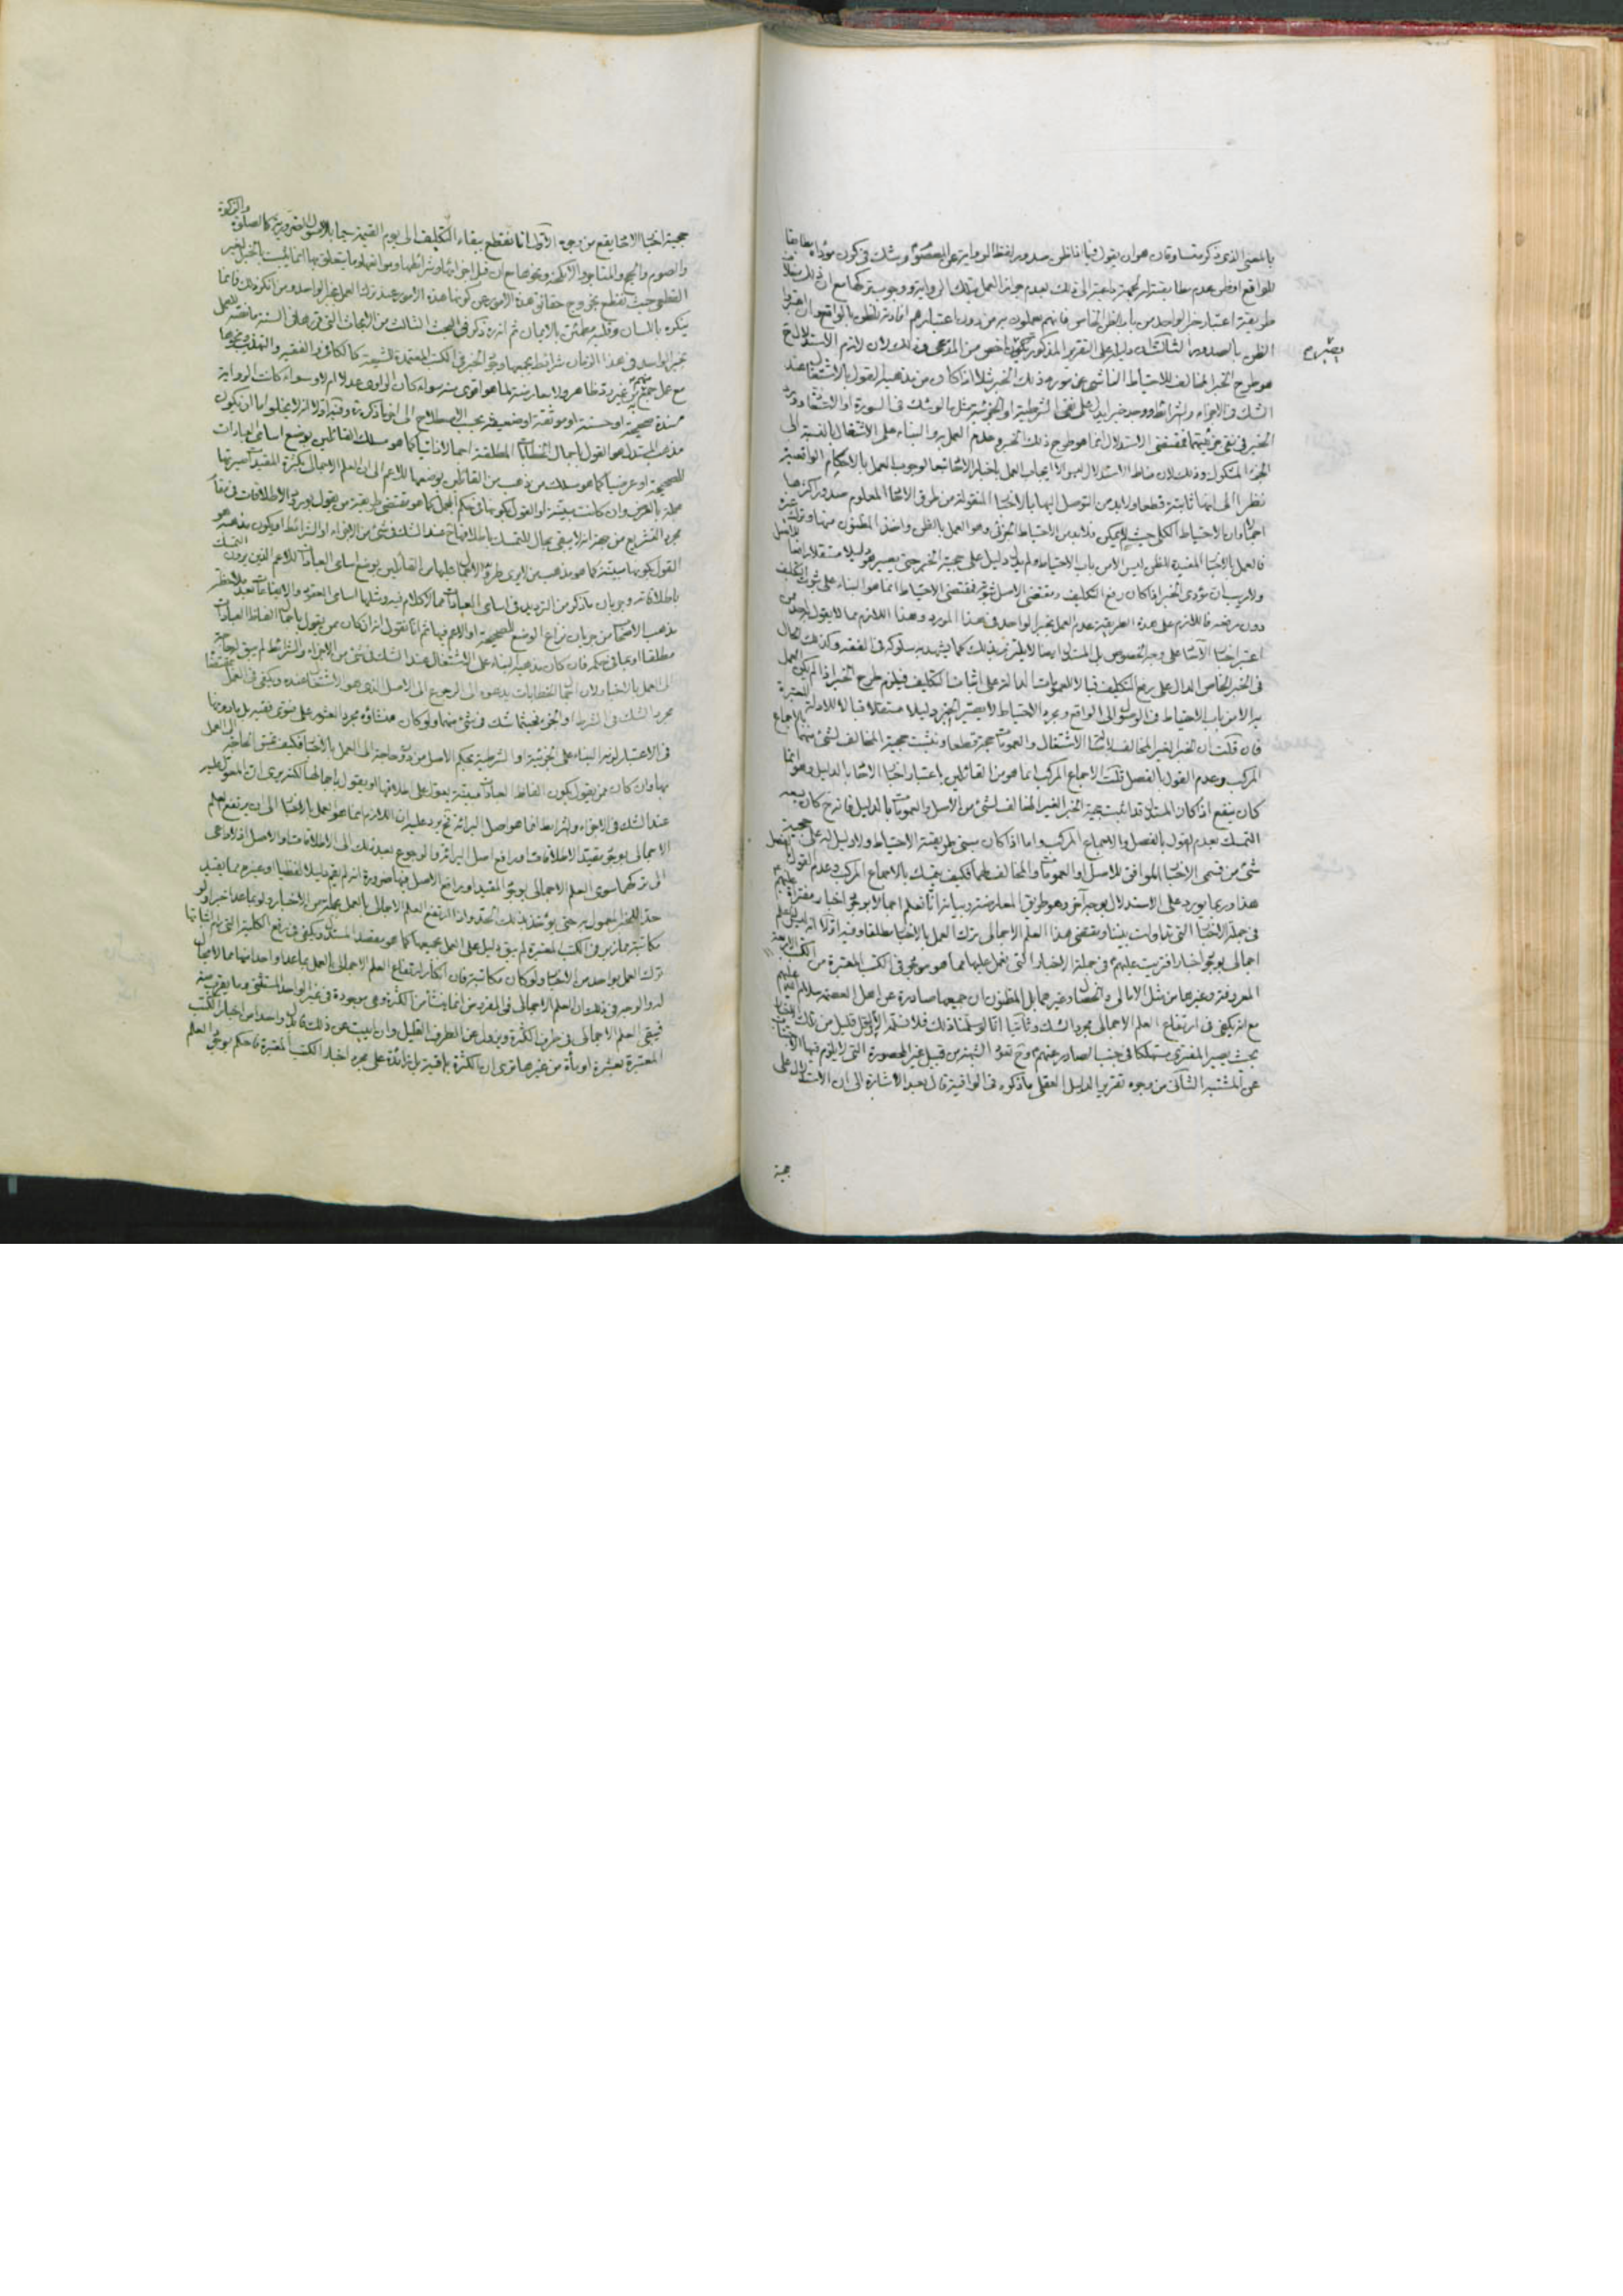 بالمعنى الذى ذكر متساوقان هو ان يقول فيما نظن صدور لفظ الرواية عن المعصوم و نشك فى كون مؤداه مطابقا
للواقع او نظن عدم مطابقته
طريقة اعتبار خبر الواحد من باب الظن الخاص فانهم يعملون به من دون اعتبارهم افادته للظن بالواقع
الظن بالصدور الثالث ان دليله على التقرير المذكور يكون اخص من المدعى لان لازم الاستدلال ح
هو طرح الخبر المخالف للاحتياط الناشى عن مورد ذلك الخبر مثلا اذا كان من مذهبه القول بالاشتغال عند
الشك فى الاجزاء والشرائط ووجد خبر يدل على نفى الشرطية او الجزئية مثل ما لو شك فى السورة
الخبر فى نفى جزئيتها فمقتضى الاستدلال انما هو طرح ذلك الخبر وعدم العمل به والبناء على الاشتغال بالنسبة الى
الجزء المشكوك وذلك لان مناط الاستدلال ليس الا ايجاب العمل باخبار الاحاد تبعا لوجوب العمل بالاحكام الواقعية
نظرا الى انها ثابتة قطعا ولا بد من التوصل اليها بالاخبار المنقولة من طرق الاحاد المعلوم صدور اكثرها
اجمالا وان الاحتياط الكلى حيث لم يمكن فلا بد من الاحتياط الجزئى وهو العمل بالظن واخذ المظنون منها وترك غيره
فالعمل بالاخبار المفيدة للظن ليس الا من باب الاحتياط ولم يدل دليل على حجية الخبر حتى يصير هو دليلا مستقلا رافعا للاصل
ولا ريب ان مؤدى الخبر اذا كان رفع التكليف ومقتضى الاصل ثبوته فمقتضى الاحتياط انما هو البناء على ثبوت التكليف
دون رفعه فاللازم على هذه الطريقة عدم العمل بخبر الواحد فى هذا المورد وهذا اللازم مما لا يقول به احد من
اعتبر اخبار الآحاد على وجه الخصوص بل المستدل ايضا لا يلتزم بذلك كما يشهد به سلوكه فى الفقه وكذلك الحال
فى الخبر الخاص الدال على رفع التكليف قبال العمومات الدالة على اثبات التكليف فيلزم طرح الخبر اذا لم يكن العمل
به الا من باب الاحتياط فى الوصول الى الواقع ومجرد الاحتياط لا يصير الخبر دليلا مستقلا قبالا للادلة المعتبرة
فان قلت ان الخبر الغير المخالف لاصالة الاشتغال والعمومات حجة قطعا ويثبت حجية المخالف لشئ منهما بالاجماع
المركب وعدم القول بالفصل قلت الاجماع المركب انما هو من القائلين باعتبار اخبار الاحاد بالدليل وهو انما
كان ينفع اذا كان المستدل قد اثبت حجية الخبر الغير المخالف لشئ من الاصل والعمومات بالدليل فانه ح كان يسعه
التمسك بعدم القول بالفصل والاجماع المركب واما اذا كان مبنى طريقته الاحتياط ولا دليل له على حجية
شئ من قسمى الاخبار الموافق للاصل او العمومات والمخالف لهما فكيف يتمسك بالاجماع المركب وعدم القول بالفصل
هذا وربما يورد على الاستدلال بوجه آخر وهو طريق المعارضة وبيانه انا نعلم اجمالا بوجود اخبار مفتراة عليهم
فى جملة الاخبار التى تداولت بيننا ومقتضى هذا العلم الاجمالى ترك العمل بالاخبار مطلقا وفيه اولا انه ليس لنا علم
اجمالى بوجود اخبار افتريت عليهم فى جملة الاخبار التى نعمل عليها مما هو موجود فى الكتب المعتبرة من الكتب الاربعة
المعروفة وغيرها من مثل الامالى والخصال وغيرهما بل المظنون ان جميعها صادرة عن اهل العصمة سلام الله عليهم
مع انه يكفى فى ارتفاع العلم الاجمالى مجرد الشك وثانيا انا لو سلمنا ذلك فلا نسلم الا فى اقل قليل من تلك الاخبار
بحيث يصير المفترى مستهلكا فى جنب الصادر عنهم وح تعود الشبهة من قبيل غير المحصورة التى لا يلزم فيها الاجتناب
عن المشتبه الثانى من وجوه تقرير الدليل العقلى ما ذكره فى الوافية قال بعد الاشارة الى ان الاستدلال على
حجية
حجية اخبار الاحاد يقع من وجوه الاول انا نقطع ببقاء التكليف الى يوم القيمة سيما بالاصول الضرورية كالصلوة والزكوة
والصوم والحج والمتاجر والانكحة ونحوها مع ان جل اجزائها وشرائطها وموانعها وما يتعلق بها انما يثبت بالخبر الغير
القطعى بحيث نقطع بخروج حقائق هذه الامور عن كونها هذه الامور عند ترك العمل بخبر الواحد ومن انكر ذلك فانما
ينكره باللسان وقلبه مطمئن بالايمان ثم انه ذكر فى البحث الثالث من الابحاث التى قررها فى السنة ما نصه العمل
بخبر الواحد فى هذا الزمان شرائط يجمعها وجود الخبر فى الكتب المعتمدة للشيعة كالكافى والفقيه والتهذيب ونحوها
مع عمل جمع منهم به من غير رد ظاهر ولا معارضة لما هو اقوى منه سواء كان الراوى عدلا ام لا وسواء كانت الرواية
مسندة صحيحة او حسنة او موثقة او ضعيفة بحسب الاصطلاح الى اخر ما ذكره وفيه اولا انه لا يخلو اما ان يكون
مذهب المستدل هو القول باجمال الخطابات المطلقة اجمالا ذاتيا كما هو مسلك القائلين بوضع اسامى العبادات
للصحيحة او عرضيا كما هو مسلك من ذهب من القائلين بوضعها للاعم الى ان العلم الاجمالى بكثرة المقيدات صيرتها
مجملة بالعرض وان كانت مبينة او القول بكونها فى حكم المجمل كما هو مقتضى طريقة من يقول بورود الاطلاقات فى مقام
مجرد التشريع من جهة انه لا يبقى مجال للتمسك باطلاقها ح عند الشك فى شئ من الاجزاء او الشرائط او يكون مذهبه هو
القول بكونها مبينة كما هو مذهب من لا يرى طرو الاجمال عليها من القائلين بوضع اسامى العبادات للاعم الذين يرون التمسك
باطلاقاته وجريان ما ذكر من الترديد فى اسامى العبادات مما لا كلام فيه ومثلها اسامى العقود والايقاعات بعد ملاحظة
مذهب الاصحاب من جريان نزاع الوضع للصحيحة او الاعم فيها ثم انا نقول انه ان كان ممن يقول باجمال الفاظ العبادات
مطلقا او ما فى حكمه فان كان مذهبه البناء على الاشتغال عند الشك فى شئ من الاجزاء والشرائط لم يبق له حاجة
الى العمل بالاخبار لان اجمال الخطابات يدعوه الى الرجوع الى الاصل الذى هو الاشتغال عنده ويكفى فى العمل بمقتضاه
مجرد الشك فى الشرط او الجزء فحيثما شك فى شئ منهما ولو كان منشاؤه مجرد العثور على فتوى فقيه
فى الاعتبار لزمه البناء على الجزئية او الشرطية بحكم الاصل من دون حاجة الى العمل بالاخبار فكيف تتحقق الحاجة الى العمل
بها وان كان ممن يقول بكون الفاظ العبادات مبينة يعول على اطلاقها او يقول باجمالها لكنه يرى ان المعول عليه
عند الشك فى الاجزاء والشرائط انما هو اصل البرائة فح يرد عليه ان اللازم انما هو العمل بالاخبار الى ان يرتفع العلم
الاجمالى بوجود مقيدات الاطلاقات او رافع اصل البرائة والرجوع بعد ذلك الى الاطلاقات او الاصل اذ لا داعى
الى تركهما سوى العلم الاجمالى بوجود المقيد او رافع الاصل فيها ضرورة انه لم يقم دليلا لفظيا او غيره مما يفيد
حد الخبر المعمول به حتى يؤخذ بذلك الحد واذا ارتفع العلم الاجمالى بالعمل بجملة من الاخبار ولو بما عدا خبرا ولو
مكاتبة مما زبر فى الكتب المعتبرة لم يبق دليل على العمل بجميعها كما هو مقصد المستدل ويكفى فى رفع الكلية التى رام اثباتها
ترك العمل بواحد من الاخبار ولو كان مكاتبة فان انكار ارتفاع العلم الاجمالى بالعمل بما عدا واحدا منها مما لا مجال
له والوجه فى ذلك ان العلم الاجمالى فى المفروض انما ينشأ من الكثرة وهى موجودة فى غير الواحد المستثنى وما يقرب منه
فيبقى العلم الاجمالى فى طرف الكثرة ويزول عن الطرف القليل وان ابيت عن ذلك قابل واحدا من اخبار الكتب
المعتبرة بعشرة او بمأة من غيرها ترى ان الكثرة باقية بل زائدة على مجرد اخبار الكتب المعتبرة فاحكم بوجود العلم